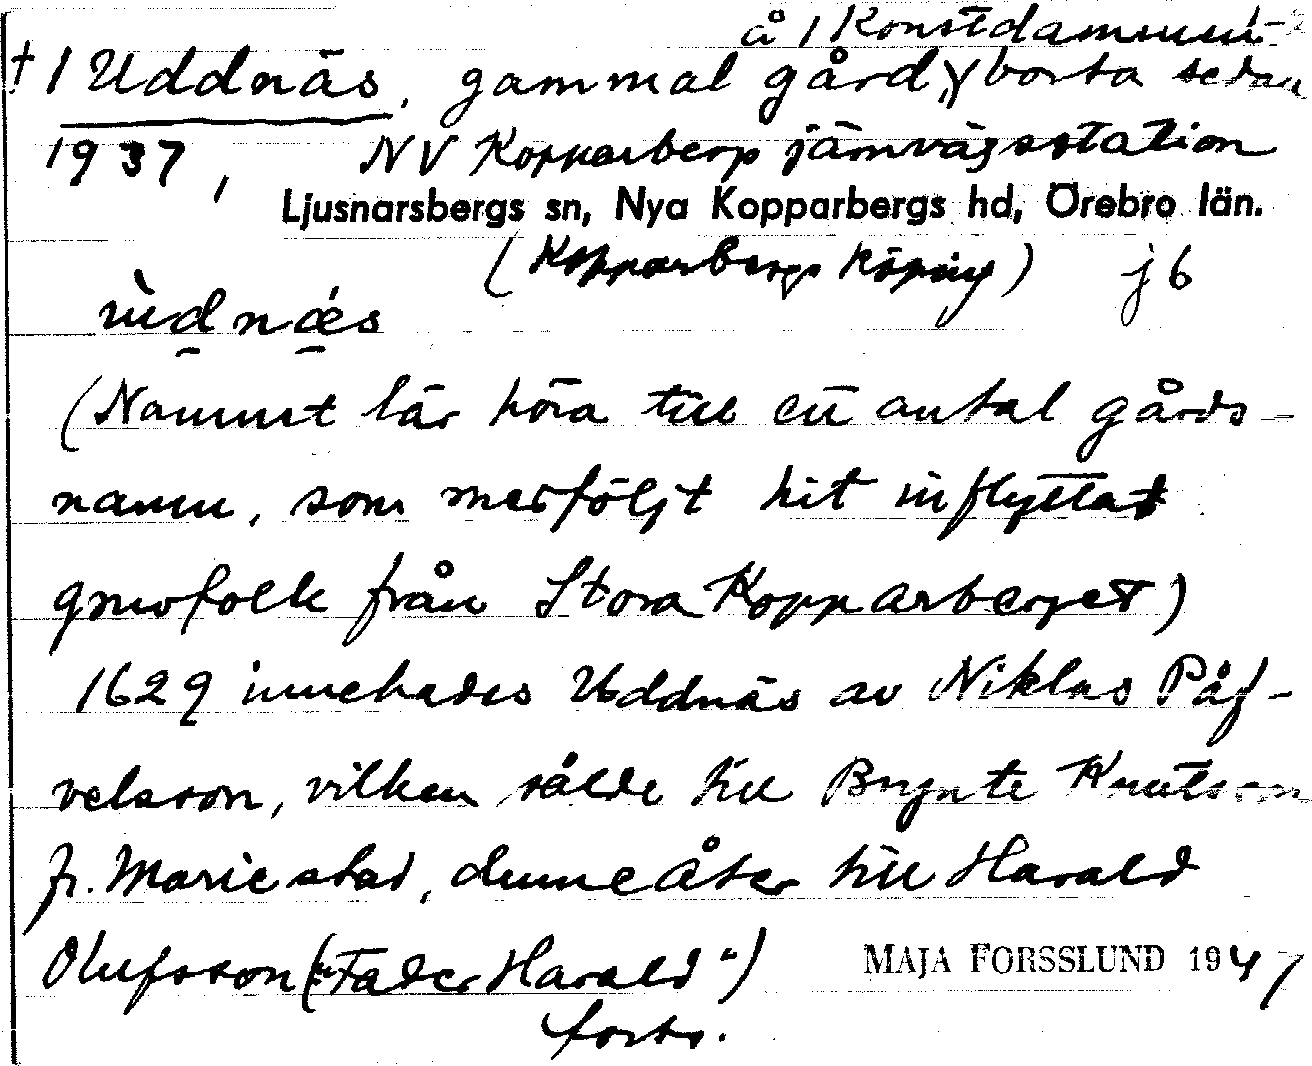 å 1 Konstdammen
† 1 Uddnäs, gammal gård, borta sedan
1937, NV Kopparberg järnvägsstation
Ljusnarsbergs sn, Nya Kopparbergs hd, Örebro län.
(Kopparbergs köping) j 6
ùdnǽs
(Namnet lär höra till ett antal gårds-
namn, som medföljt hit inflyttat
gruvfolk från Stora Kopparberget)
1629 innehades Uddnäs av Niklas Påf-
velsson, vilken sålde till Brynte Knutsson
fr. Mariestad, denne åter till Harald
Olufsson ("Fader Harald")
MAJA FORSSLUND 1947
forts.